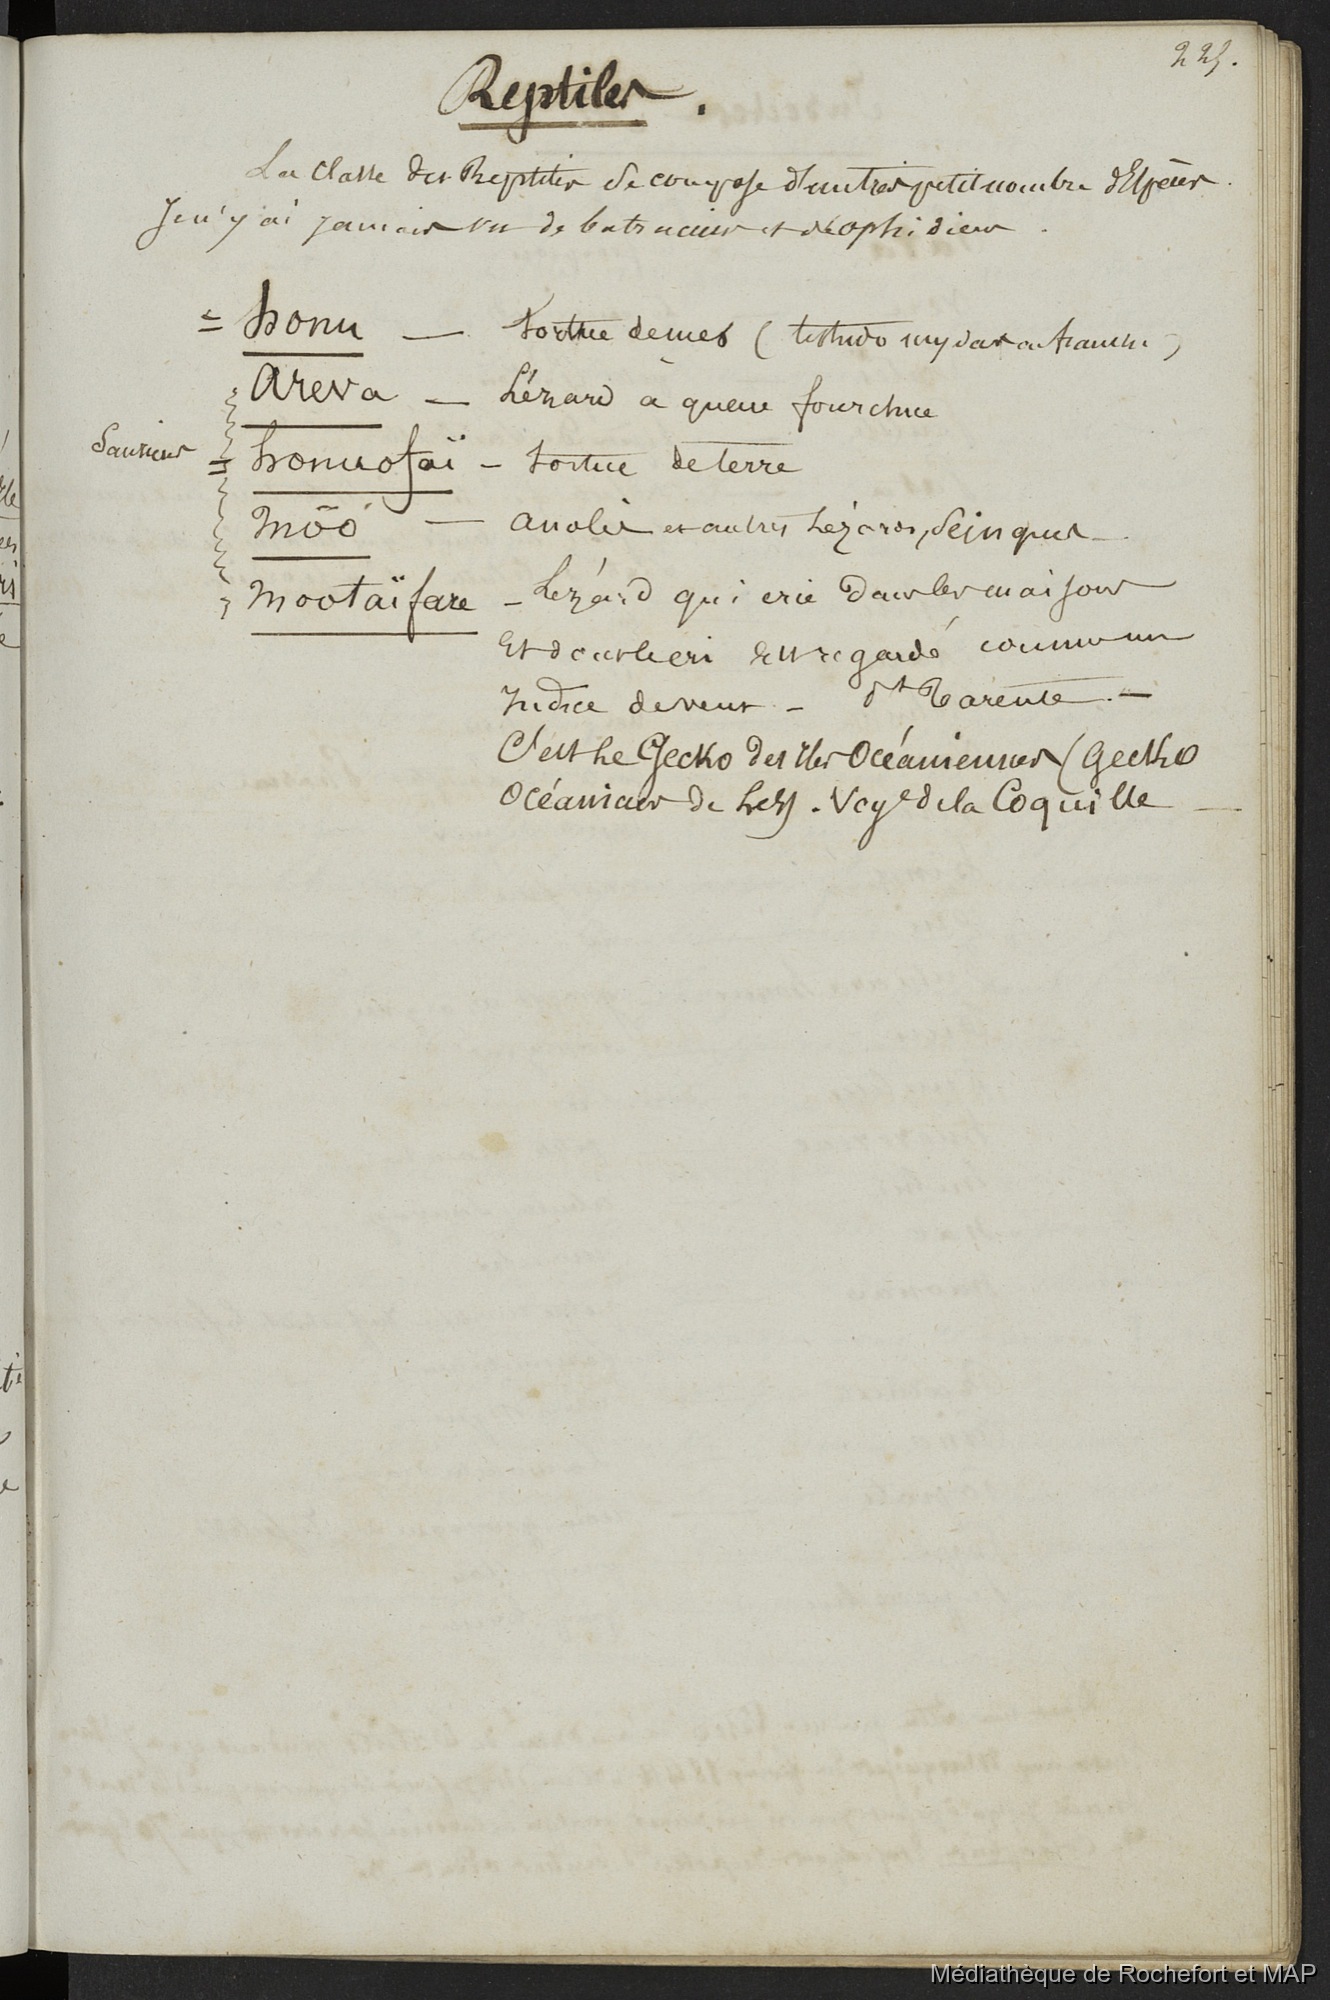 225.
Reptiles.
La Classe des Reptiles se compose d'un très petit nombre d'Espèces.
Je n'y ai jamais vu de batraciens et d'ophidiens.
= honu — tortue de mer (testudo mydas
Areva — Lézard à queue fourchue
Sauriens = honuofaï - tortue de terre
Mõó — anolis et autres Lézards, Scinques —
Mootaïfare - Lézard qui crie dans les maisons
Et dont le cri est regardé comme un
Indice de vent - dt Tarente. —
C'est le Gecko des iles Océaniennes (Gecko
Océanicus de Less. Voye de la Coquille —
Médiathèque de Rochefort et MAP